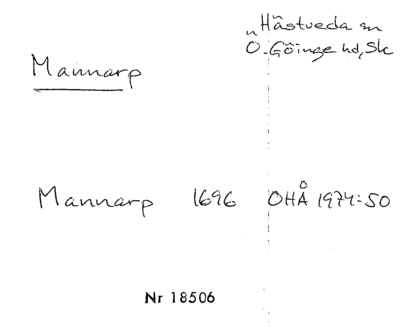 Hästveda sn
Ö. Göinge hd, Sk
Mannarp
Mannarp 1696 OHÅ 1974:50
Nr 18506